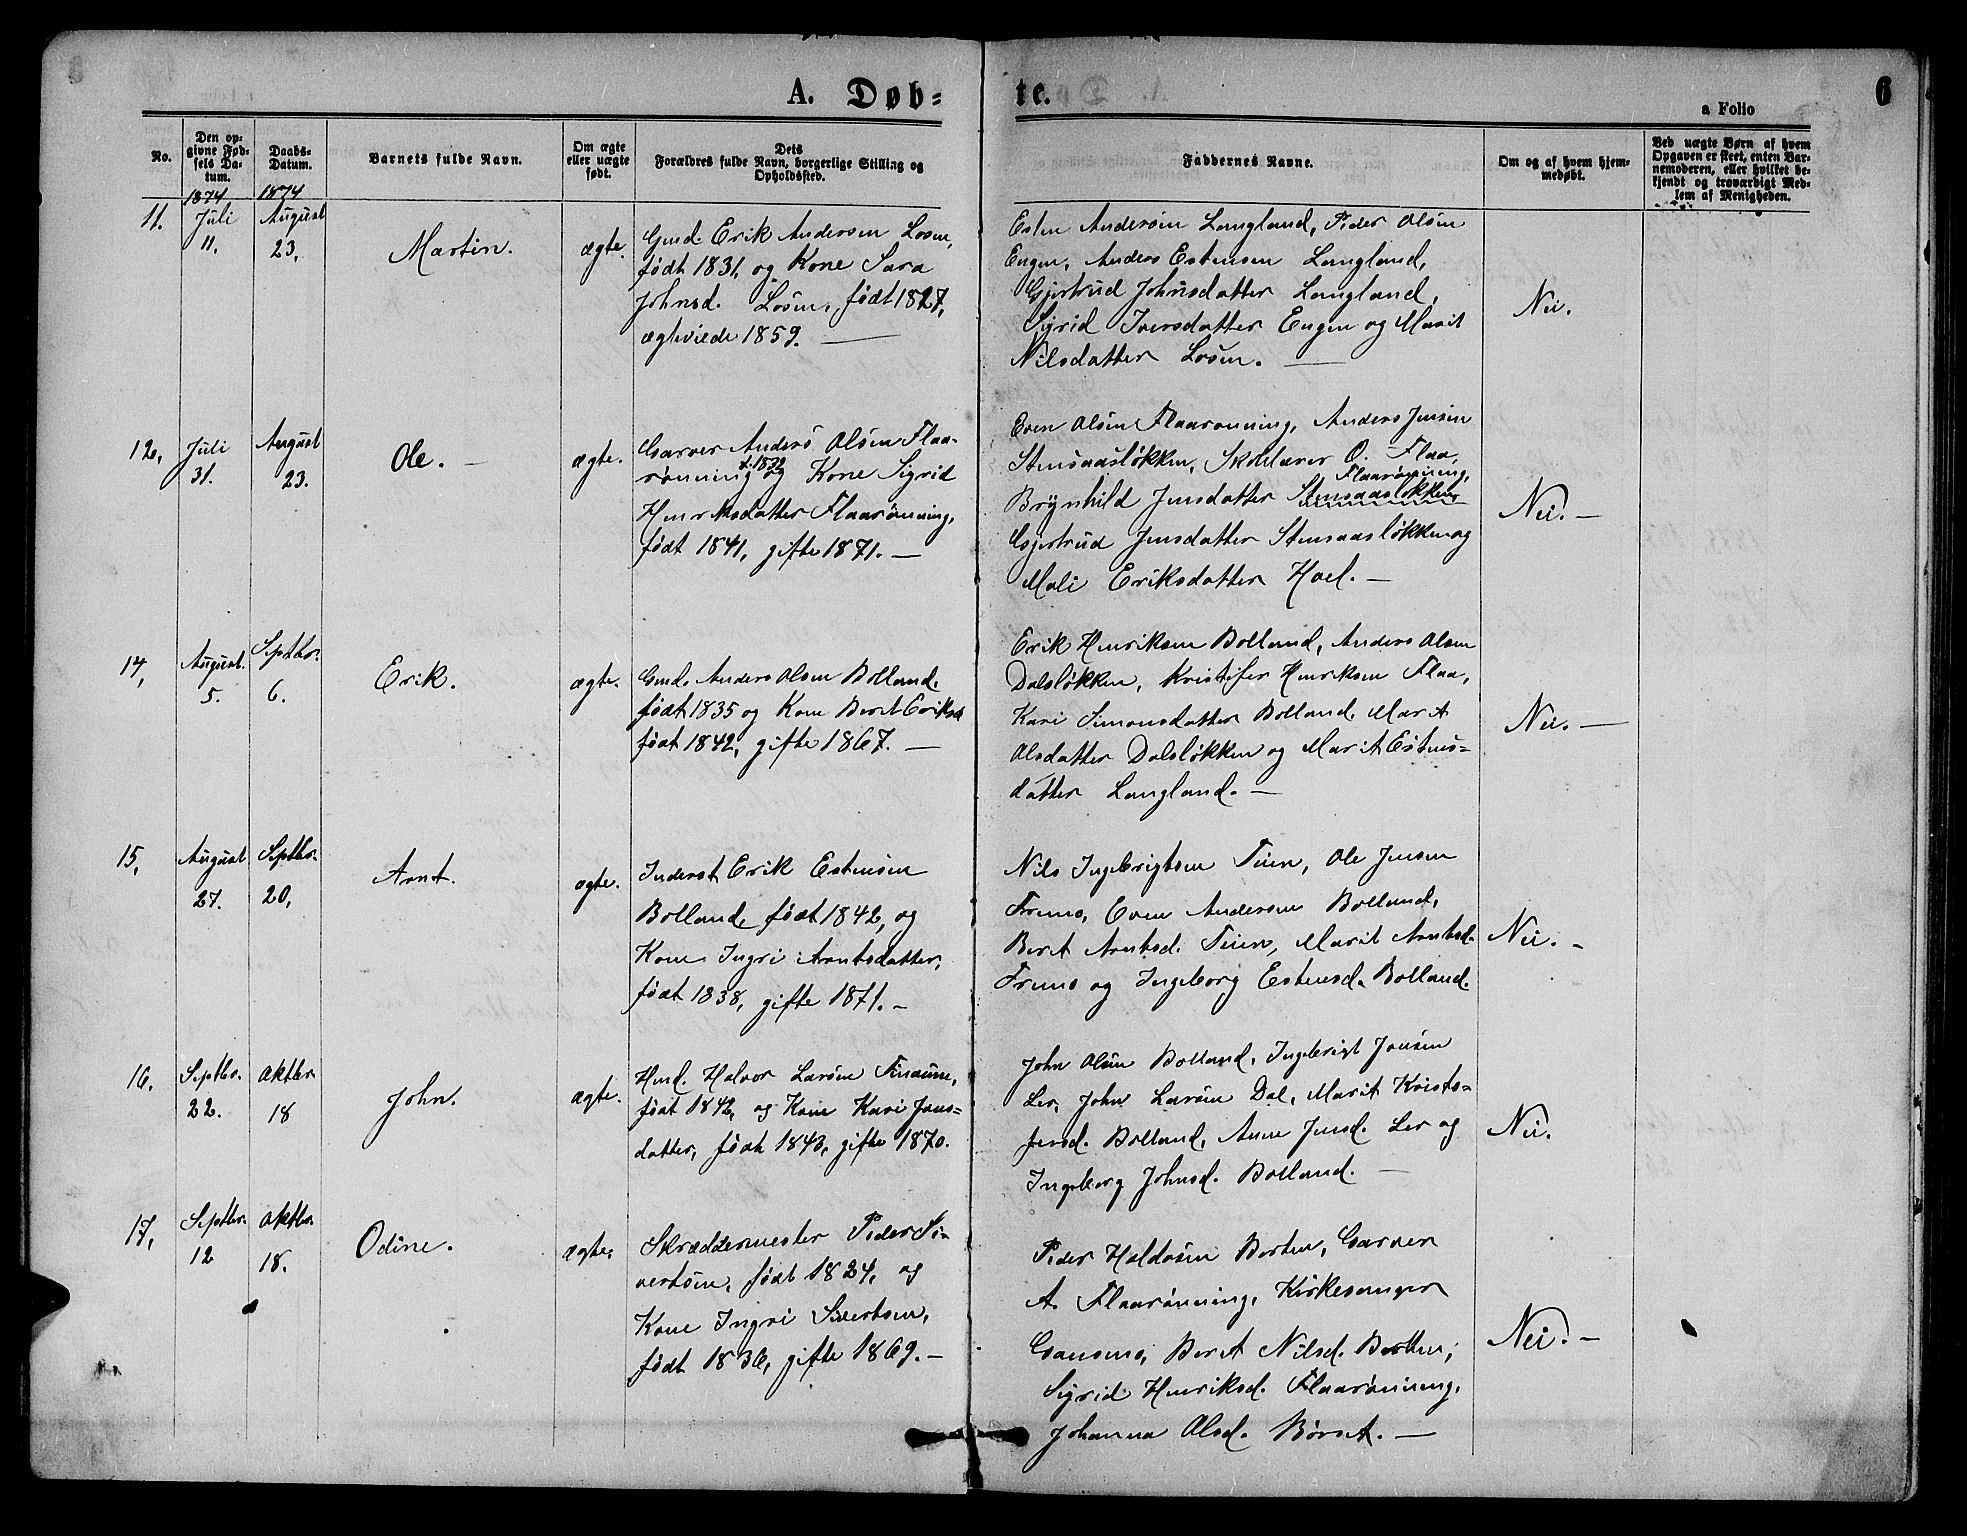 A. Døb=
te.
a Folio
6
No.
Den op=
givne Fød=
sels Da=
tum.
Daabs=
Datum.
Barnets fulde Navn.
Om ægte
eller uægte
født.
Dets
Forældres fulde Navn, borgerlige Stilling og
Opholdssted.
Faddernes Navne.
Om og af hvem hjem=
medøbt.
Ved uægte Børn af hvem
Opgaven er skeet, enten Bar=
nemoderen, eller hvilket be=
kjendt og troværdigt Med=
lem af Menigheden.
1874
1874
11.
Juli
11.
August
23.
Martin.
ægte.
Gmd. Erik Andersen Losen,
født 1831, og Kone Sara
Johnsd. Losen, født 1827,
ægteviede 1859. —
Esten Andersen Langland, Peder Olsen
Engen, Anders Estensen Langland,
Gjertrud Johnsdatter Langland,
Sigrid Iversdatter Engen og Marit
Nilsdatter Losen. —
Nei.
12.
Juli
31.
August
23.
Ole. —
ægte.
Garver Anders Olsen Flaa-
rønning og Kone Sigrid
Henriksdatter Flaarønning,
født 1841, gifte 1871. —
Even Olsen Flaarønning, Anders Jensen
Stensaasløkken, Skolelærer O. Flaa,
Flaarønning,
Brynhild Jensdatter Stensaasløkken,
Gjertrud Jensdatter Stensaasløkken og
Mali Eriksdatter Hoel. —
Nei. —
14,
August.
5.
Septbr.
6.
Erik.
ægte.
Gmd. Anders Olsen Bolland,
født 1835 og Kone Berit Eriksd
født 1842, gifte 1867. —
Erik Henriksen Bolland, Anders Olsen
Dalsløkken, Kristifer Henriksen Flaa,
Kari Simonsdatter Bolland, Marit
Olsdatter Dalsløkken og Marit Estens=
datter Langland. —
Nei. —
15,
August
27.
Septbr.
20,
Arnt.
ægte.
Inderst Erik Estensen
Bolland, født 1842, og
Kone Ingri Arntsdatter,
født 1838, gifte 1871. —
Nils Ingebrigtsen Tiien, Ole Jensen
Fremo, Even Andersen Bolland,
Berit Arntsd. Tiien, Marit Arntsd.
Fremo og Ingeborg Estensd. Bolland.
Nei. —
16,
Septbr.
22.
Oktbr.
18
John.
ægte.
Hmd. Halvor Larsen
født 1842, og Kone Kari Jons=
datter, født 1843, gifte 1870.
John Olsen Bolland, Ingebrigt Jonsen
Ler, John Larsen Dal, Marit Kristo=
fersd. Bolland, Anne Jensd. Ler og
Ingeborg Johnsd. Bolland. —
Nei.
17,
Septbr.
12
Oktbr.
18.
Odine.
ægte.
Skræddermester Peder Si=
vertsen, født 1824, og
Kone Ingri Sivertsen,
født 1836, gifte 1869. —
Peder Haldosen Borten, Garver
A. Flaarønning, Kirkesanger
Gansmo, Berit Nilsd. Borten,
Sigrid Henriksd. Flaarønning,
Johanna Olsd. Børset. —
Nei. —